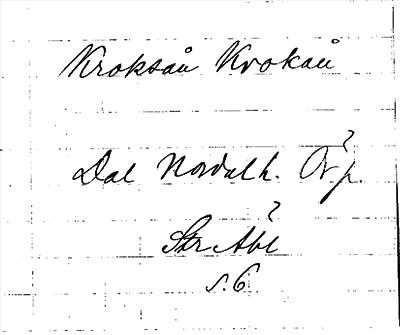 Kroksån Krokån
Dal Nordal h. Ör p.
?
Str Abl
s. 6.